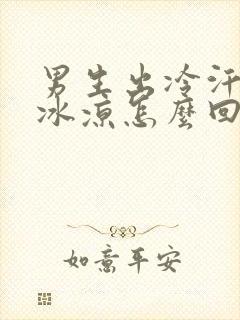 男生出冷汗
冰凉怎麼回
如意平安